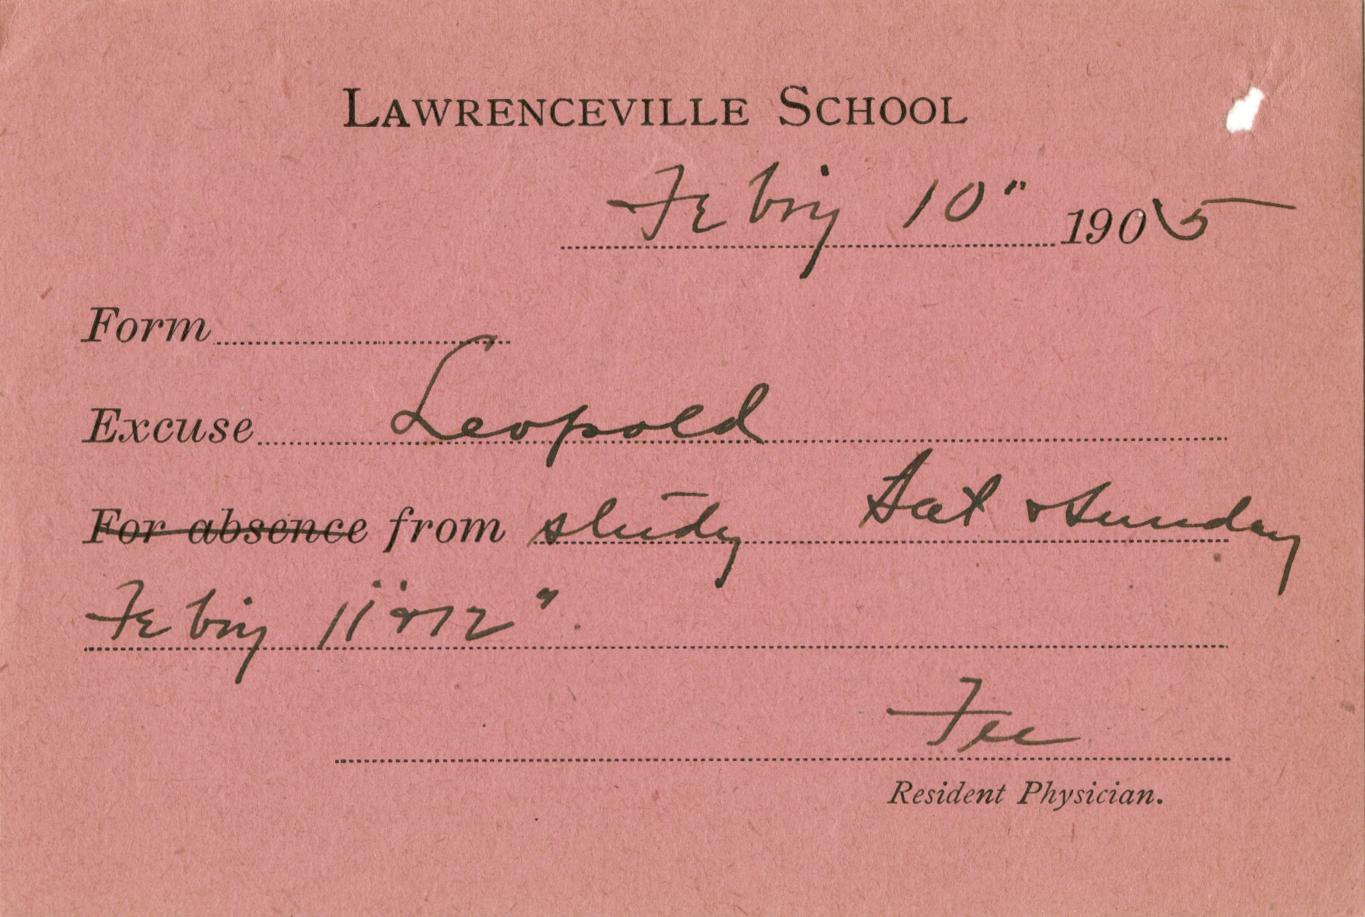 LAWRENCEVILLE SCHOOL
Febry 10" 1905
Form
Excuse Leopold
For absence from study Sat & Sunday
Febry 11" & 12".
Fee
Resident Physician.